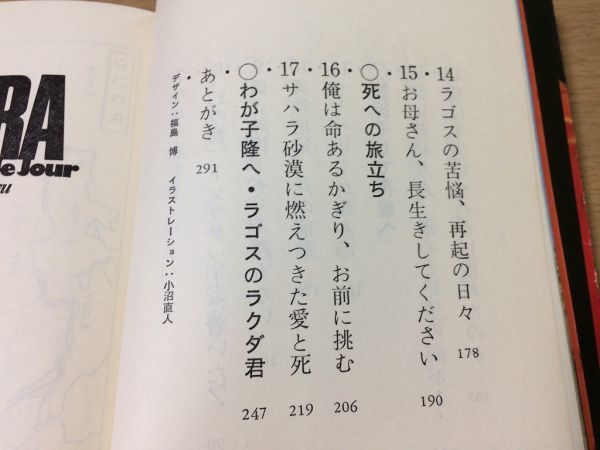 ・14 ラゴスの苦悩、再起の日々 178
・15 お母さん、長生きしてください 190
〇死への旅立ち
・16 俺は命あるかぎり、お前に挑む 206
・17 サハラ砂漠に燃えつきた愛と死 219
〇わが子隆へ・ラゴスのラクダ君 247
・あとがき 291
デザイン：福島 博 イラストレーション：小沼直人
RA
Jour